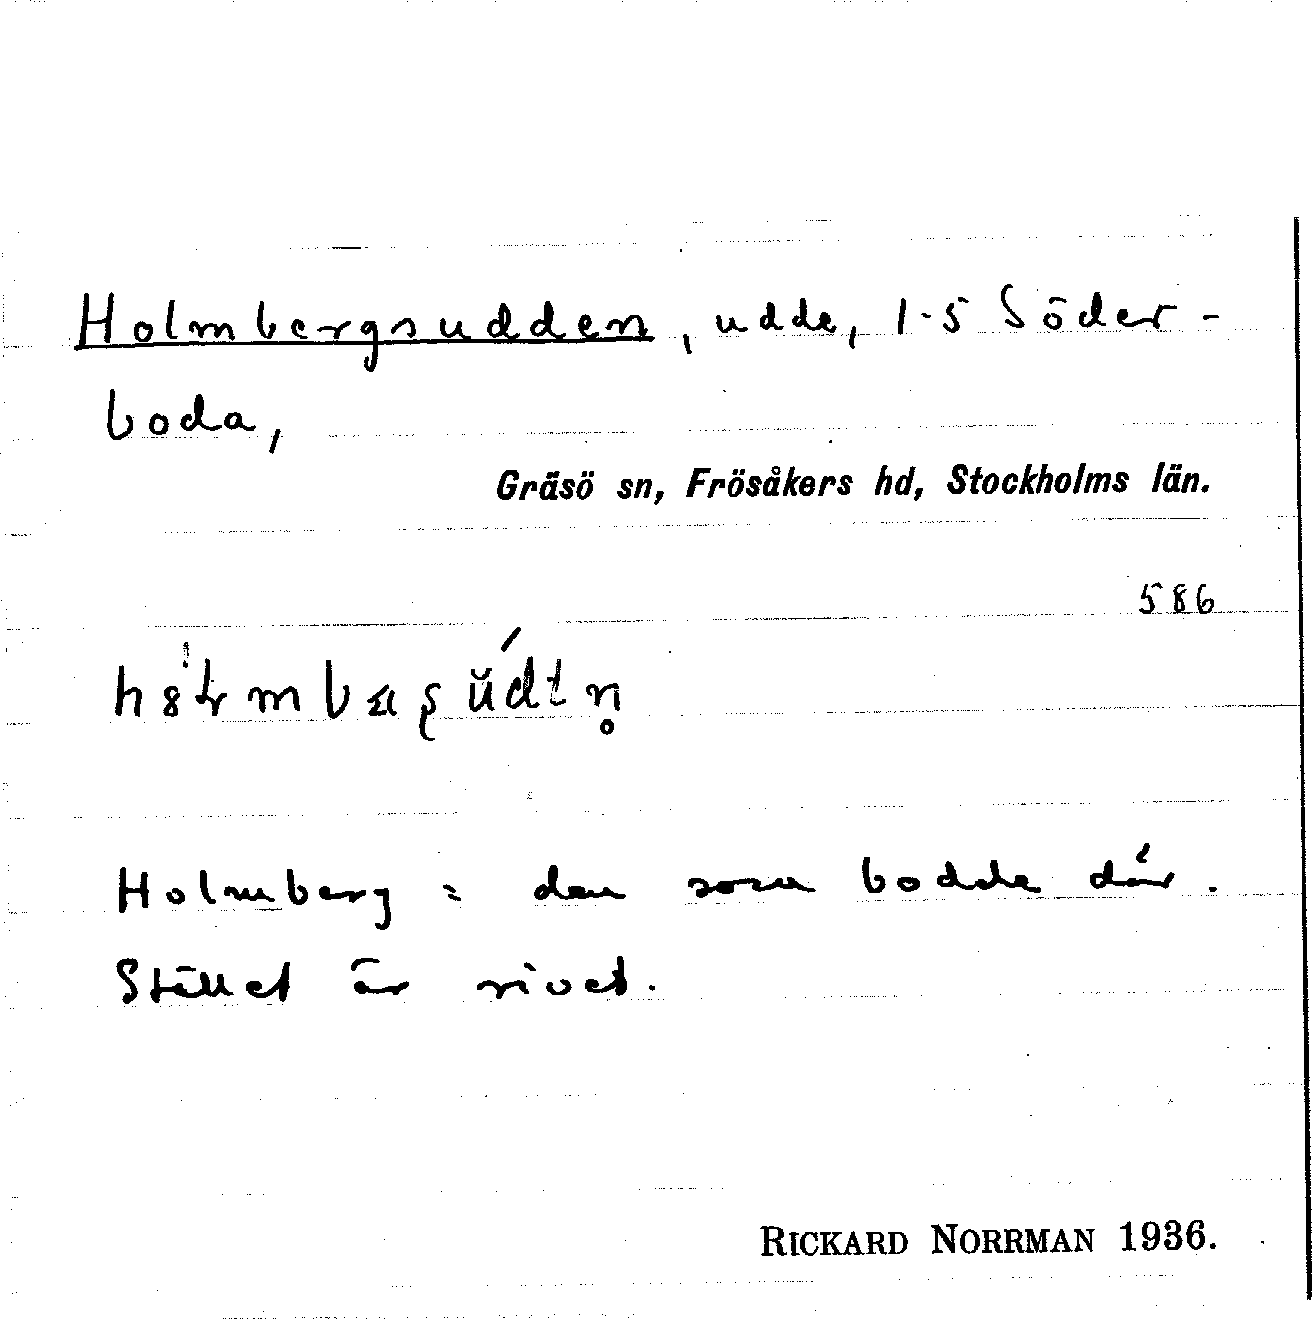 Holmbergsudden, udde, 1-5 Söder-
boda,
Gräsö sn, Frösåkers hd, Stockholms län.
586
Holmberg = den som bodde där.
Stället är rivet.
RICKARD NORRMAN 1936.